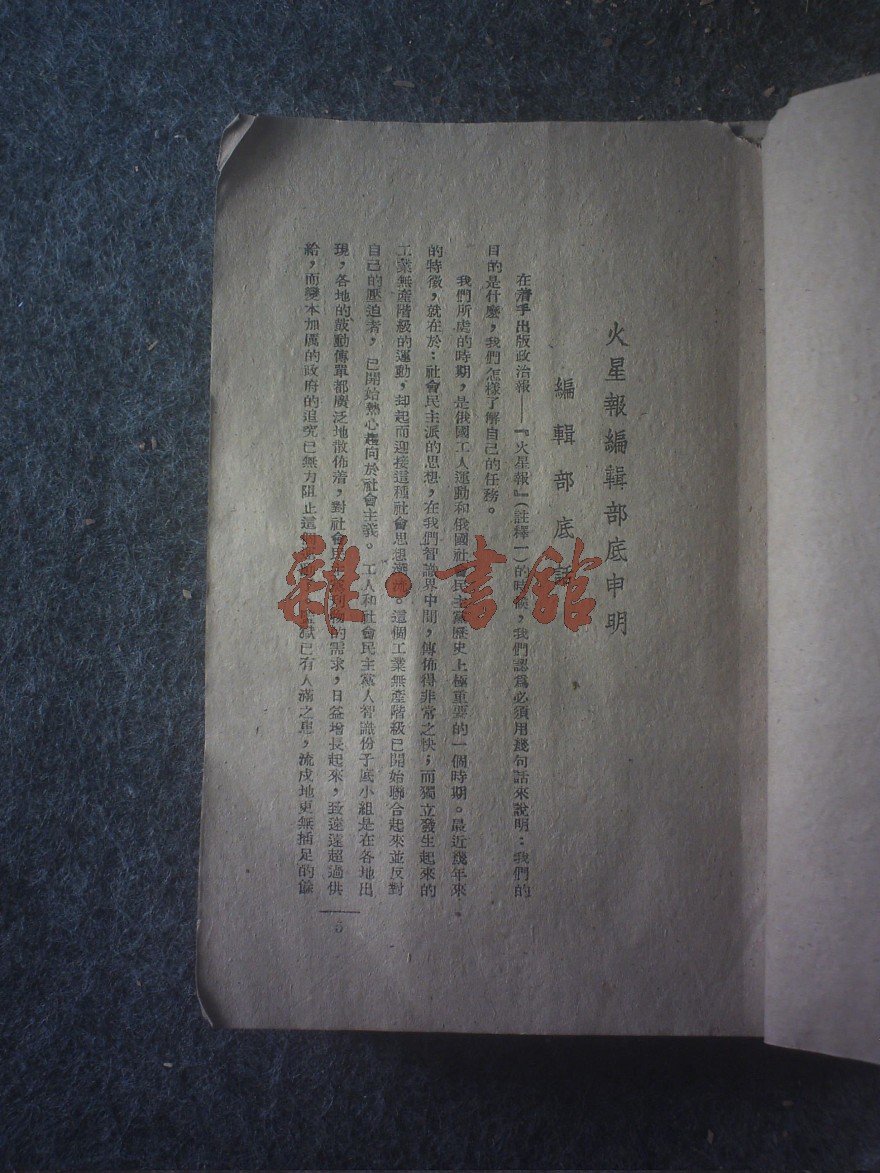 火星報編輯部底申明
編輯部底話
在着手出版政治報——『火星報』(註釋一)的時候,我們認爲必須用幾句話來說明:我們的
目的是什麼,我們怎樣了解自己的任務。
我們所處的時期,是俄國工人運動和俄國社會民主黨歷史上極重要的一個時期。最近幾年來
的特徵,就在於:社會民主派的思想,在我們智識界中間,傳佈得非常之快;而獨立發生起來的
工業無產階級的運動,却起而迎接這種社會思想潮流。這個工業無產階級已開始聯合起來並反對
自己的壓迫者,已開始熱心趨向於社會主義。工人和社會民主黨人智識份子底小組是在各地出
現,各地的鼓動傳單都廣泛地散佈着,對社會民主刊物的需求,日益增長起來,致遠遠超過供
給,而變本加厲的政府的追究已無力阻止這個 獄已有人滿之患,流戍地更無插足的餘
5
雜·書館